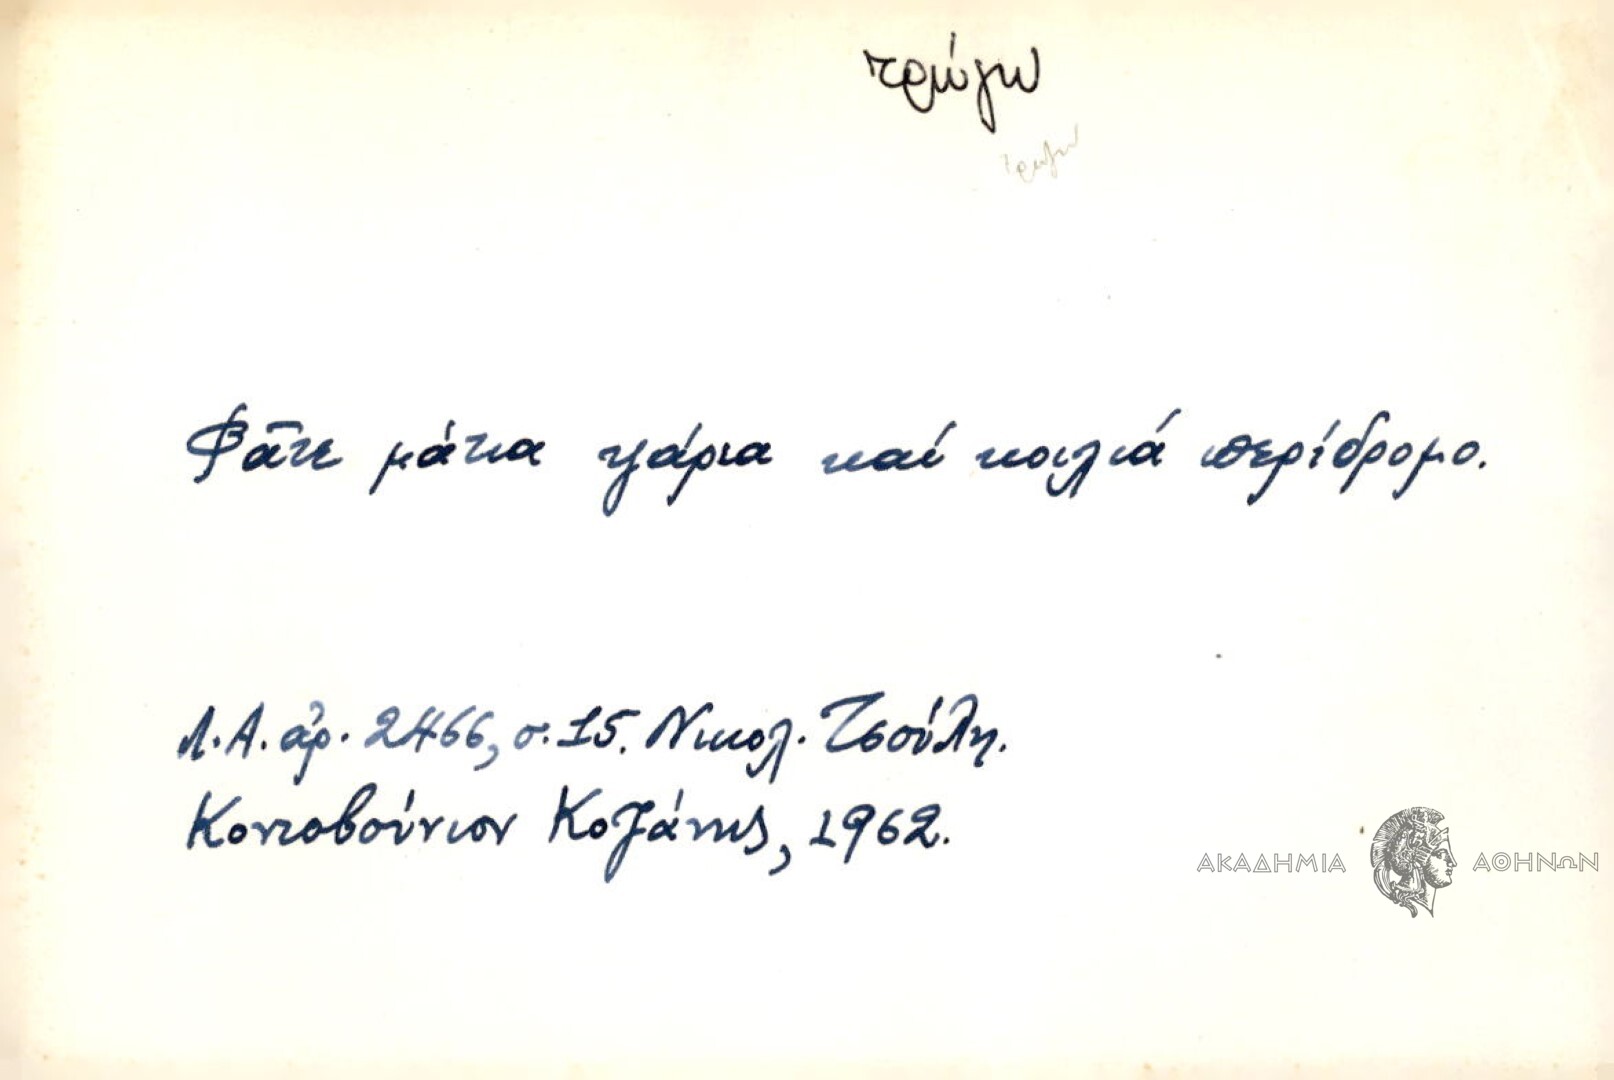 τρώγω
τρώγω
Φᾶτε μάτια ψάρια καί κοιλιά περίδρομο.
Λ.Α. ἀρ. 2466, σ. 15. Νικολ. Τσούλη.
Κοντοβούνιον Κοζάνης, 1962.
ΑΚΑΔΗΜΙΑ ΑΘΗΝΩΝ